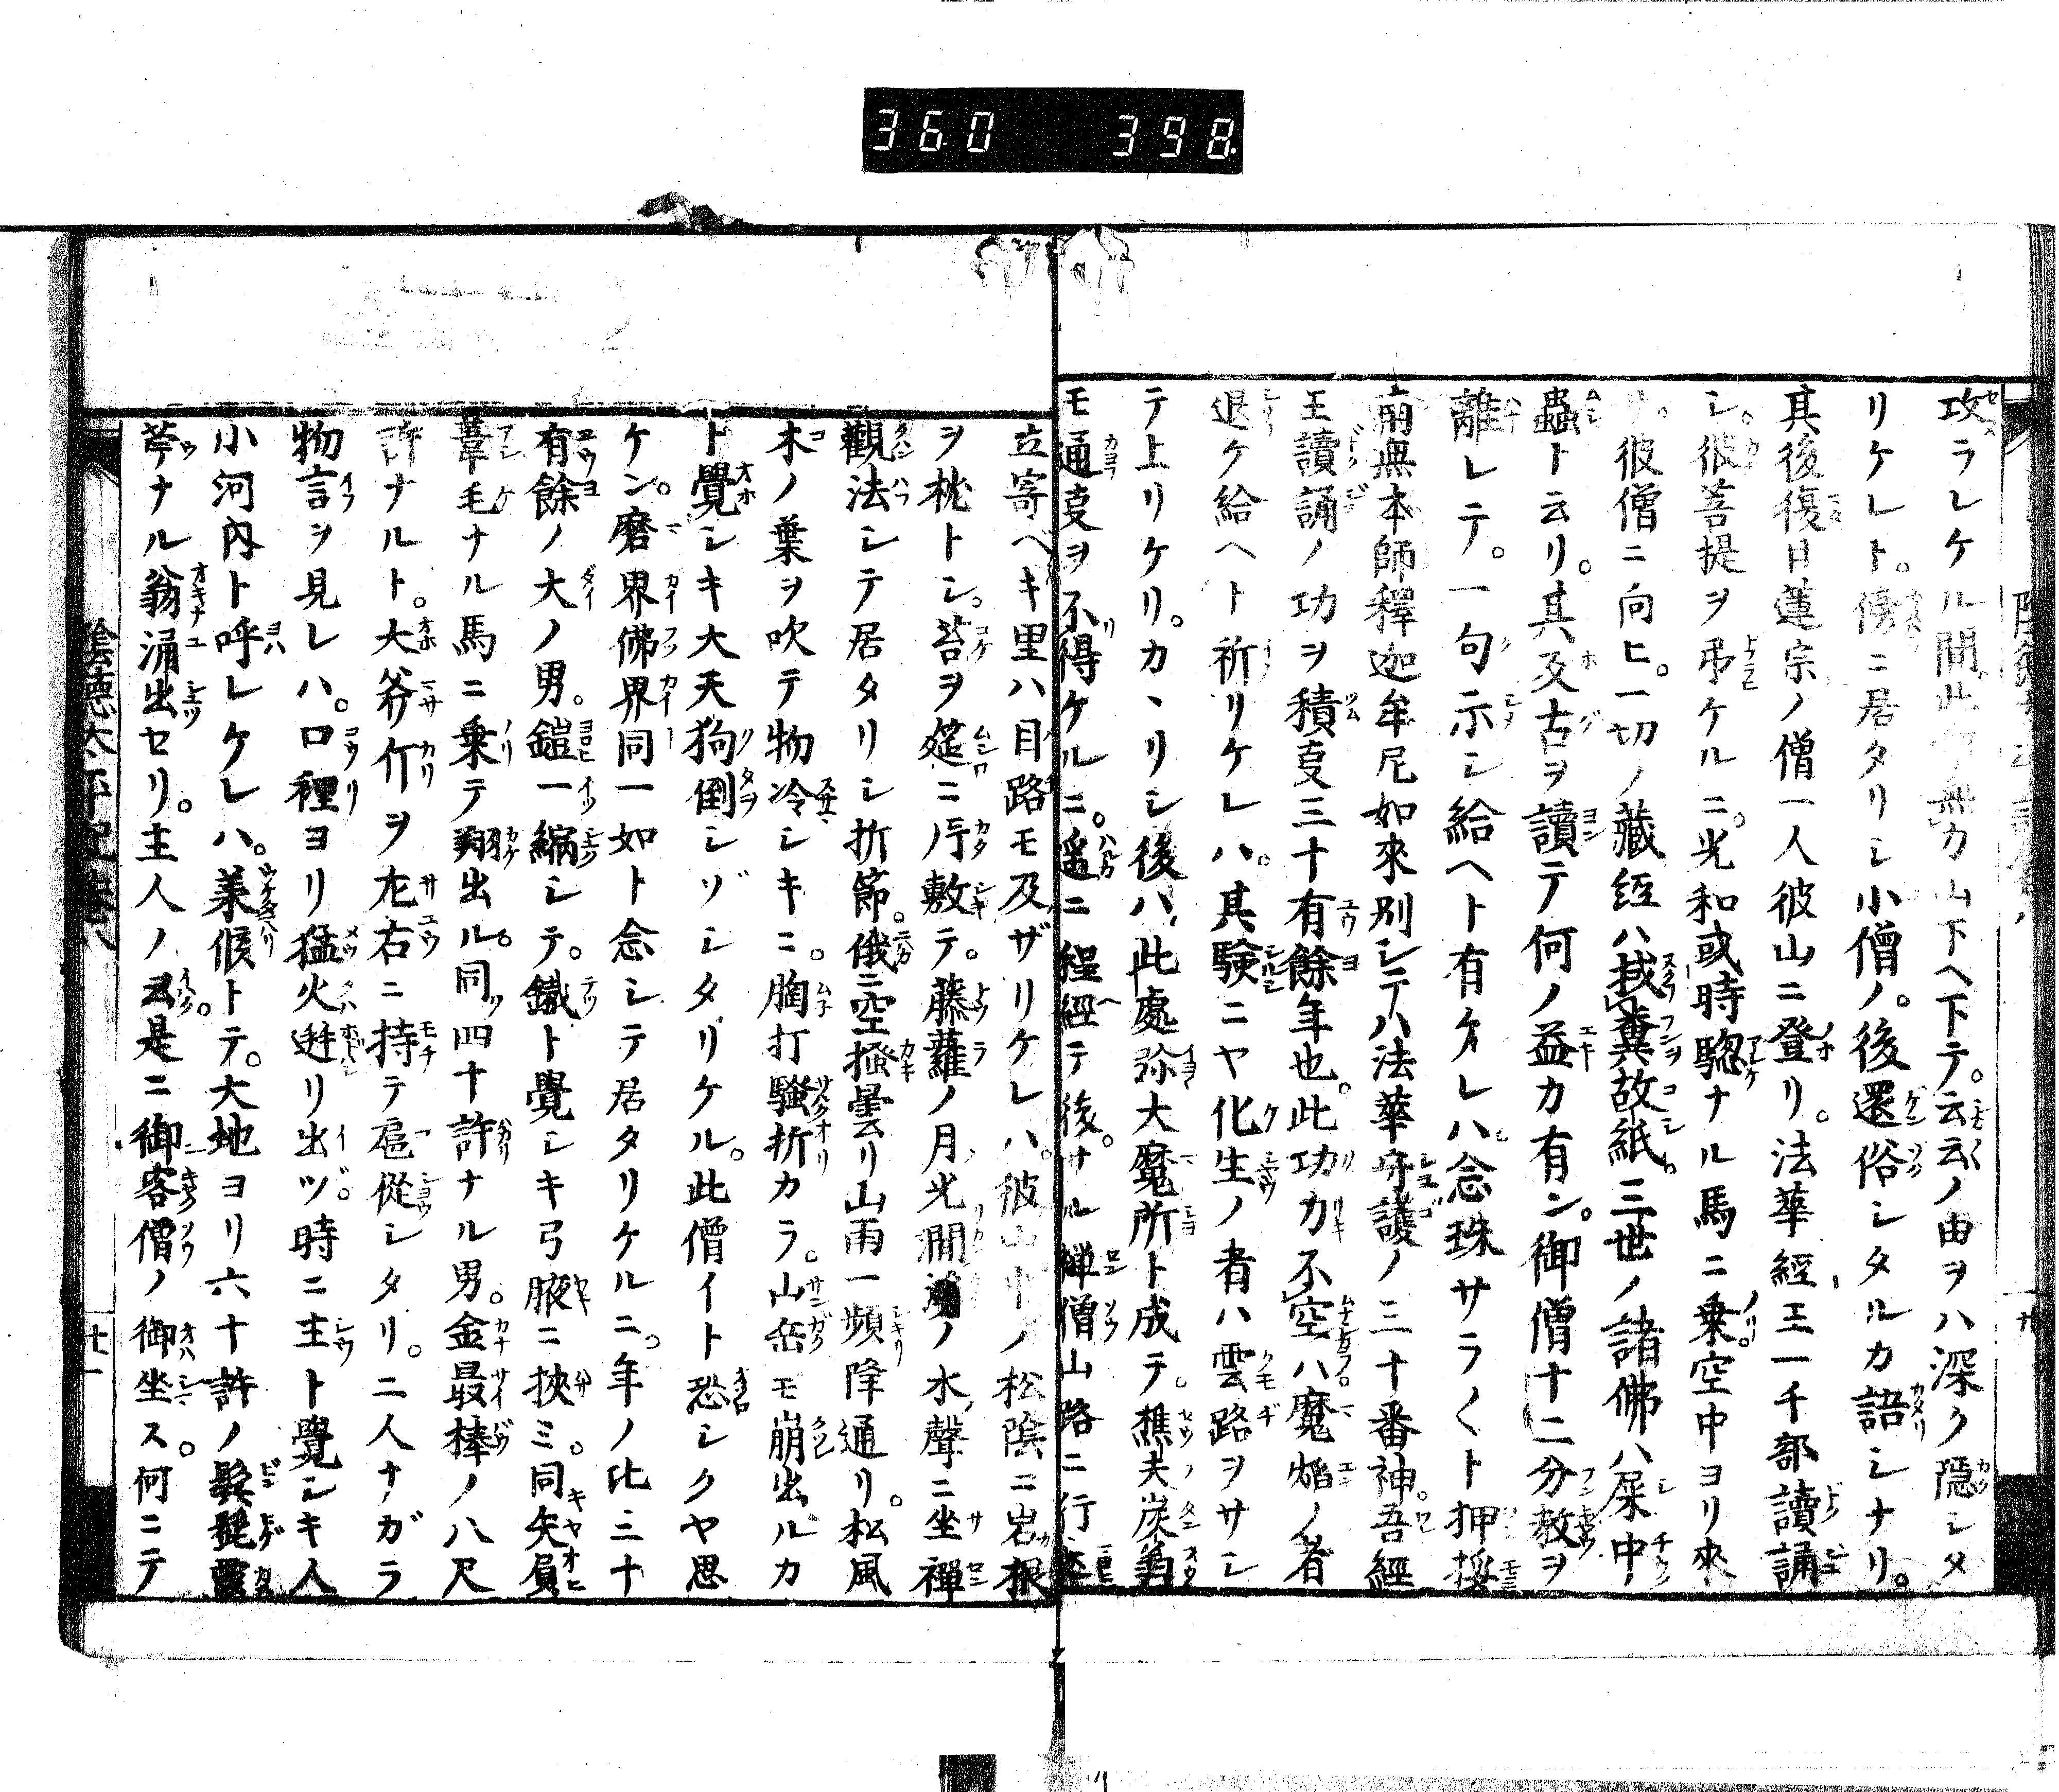 360 398
攻ラレケル間此 無力山下ヘ下テ。云云ノ由ヲハ深ク隠シタ
リケレト。傍ニ居タリシ小僧ノ。後還俗シタルカ語シナリ。
其後復日蓮宗ノ僧一人彼山ニ登リ。法華經王一千部讀誦
シ。彼菩提ヲ弔ケルニ。光和或時驄ナル馬ニ乗。空中ヨリ來
リ。彼僧ニ向ヒ。一切ノ藏經ハ拭糞故紙。三世ノ諸佛ハ屎中
蟲ト云リ。其反古ヲ讀テ何ノ益カ有ン。御僧十二分教ヲ
離レテ。一句示シ給ヘト有ケレハ。念珠サラ〱ト押捼
南無本師釋迦牟尼如來別シテハ法華守護ノ三十番神。吾經
王讀誦ノ功ヲ積叓三十有餘年也。此功力不空ハ魔焔ノ者
退ケ給ヘト祈リケレハ。其験ニヤ化生ノ者ハ雲路ヲサシ
テ上リケリ。カヽリシ後ハ此處弥大魔所ト成テ。樵夫炭翁
モ通叓ヲ不得ケルニ。遥ニ程經テ後。サル禅僧山路ニ行
立寄ヘキ里ハ目路モ及ザリケレハ。彼山中ノ松陰ニ岩根
ヲ枕トシ。苔ヲ筵ニ片敷テ。藤蘿ノ月光澗 ノ水聲ニ坐禪
觀法シテ居タリシ折節。俄ニ空掻曇リ山雨一頻降通リ。松風
木ノ葉ヲ吹テ物冷シキニ。胸打騒折カラ。山岳モ崩出ルカ
ト覺シキ大天狗倒シゾシタリケル。此僧イト恐シクヤ思
ケン。磨界佛界同一如ト念シテ居タリケルニ。年ノ比三十
有餘ノ大ノ男。鎧一縮シテ。鐵ト覺シキ弓腋ニ挾ミ。同矢負
葦毛ナル馬ニ乗テ翔出ル。同四十許ナル男。金最棒ノ八尺
許ナルト。大斧ヲ左右ニ持テ扈從シタリ。二人ナガラ
物言ヲ見レハ。口裡ヨリ猛火迸リ出ヅ。時ニ主ト覺シキ人
小河内ト呼レケレハ。候トテ。大地ヨリ六十許ノ鬂髭
ナル翁涌出セリ。主人ノ云是ニ御客僧ノ御坐ス。何ニテ
陰德太平記巻八
廿一